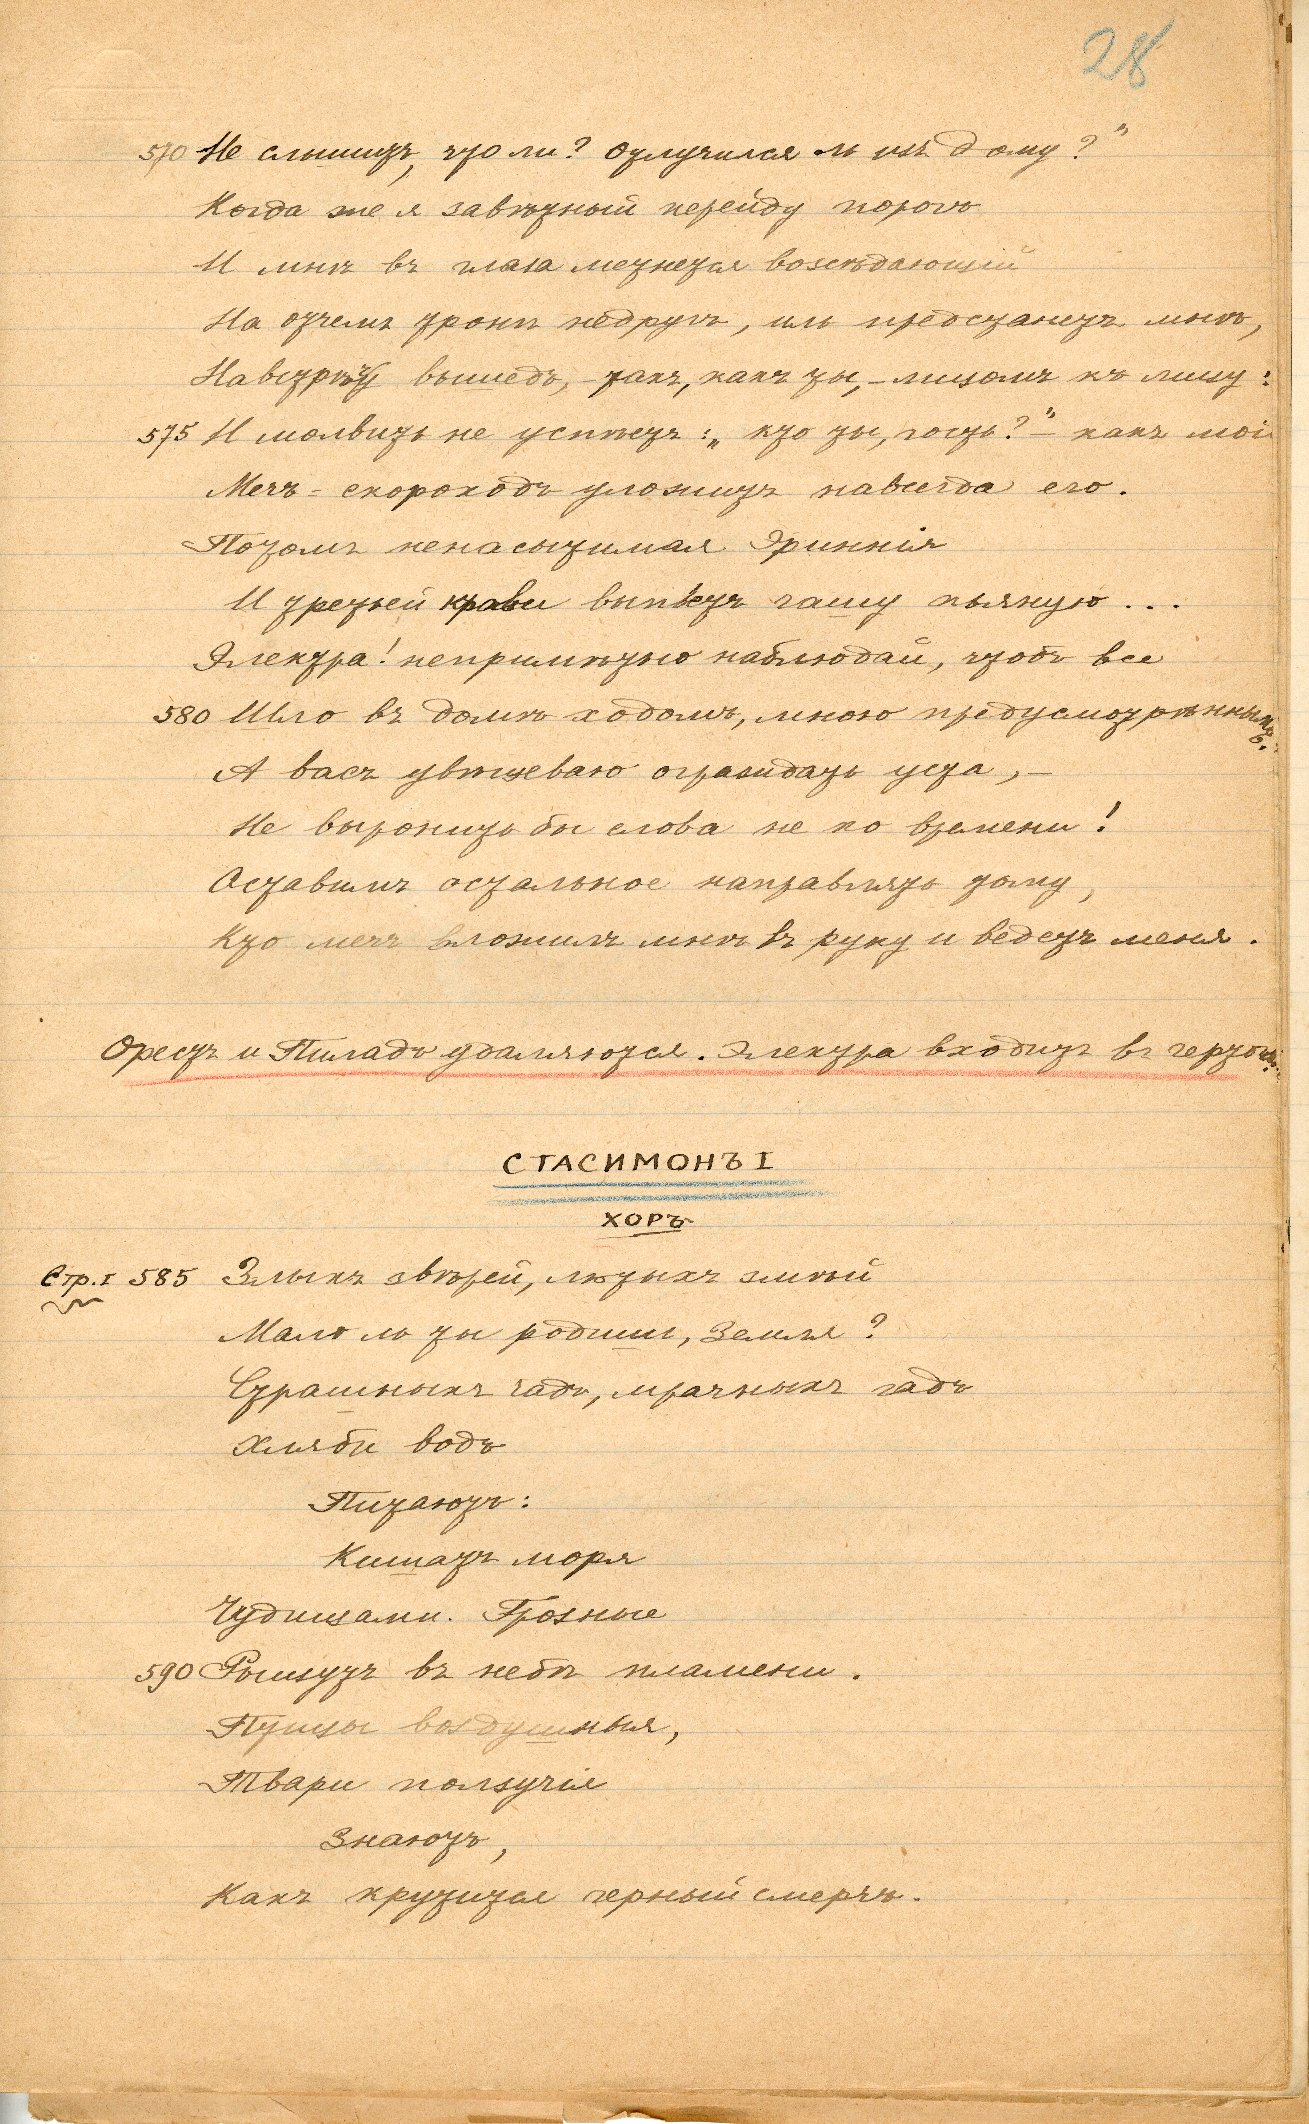 28
570 Не слышитъ, что ли? Отлучился ль изъ дому?"
Когда же я завѣтный перейду порогъ
И мнѣ въ глаза метнется возсѣдающій
На отчемъ тронѣ недругъ, иль предстанетъ мнѣ,
Навстрѣчу вышедъ, – такъ, какъ ты, – лицомъ къ лицу:
575 И молвить не успѣетъ: „кто ты, гость?" – какъ мой
Мечъ-скороходъ уложитъ навсегда его.
Потомъ ненасытимая Эриннія
И третьей крови выпьетъ чашу пьяную...
Электра! непримѣтно наблюдай, чтобъ все
580 Шло въ домѣ ходомъ, мною предусмотрѣннымъ.
А васъ увѣщеваю ограждать уста, –
Не выронить бы слова не ко времени!
Оставимъ остальное направлять тому,
Кто мечъ вложилъ мнѣ въ руку и ведетъ меня.
Орестъ и Пиладъ удаляются. Электра входитъ въ чертогъ.
СТАСИМОНЪ I
ХОРЪ
Стр. I 585 Злыхъ звѣрей, лютыхъ змѣй
Мало ль ты родиши, Земля?
Страшныхъ чадъ, мрачныхъ гадъ
Хляби водъ
Питаютъ:
Кишатъ моря
Чудищами. Грозные
590 Рыщутъ въ небѣ пламени.
Птицы воздушныя,
Твари ползучія
Знаютъ,
Какъ крутится черный смерчъ.